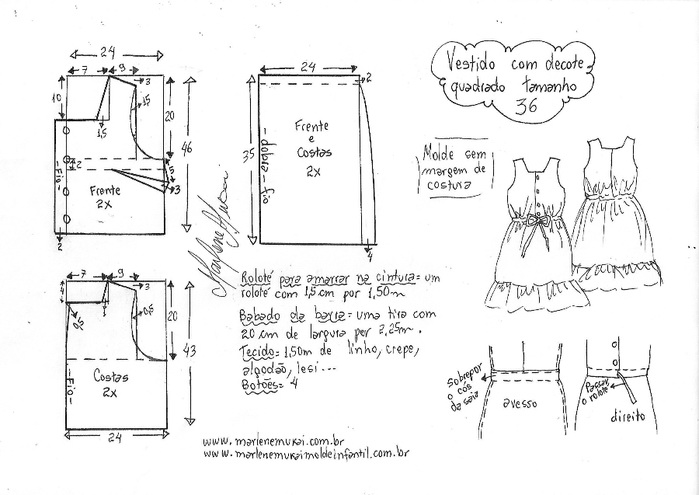 Vestido com decote
quadrado tamanho
36
Molde sem
margem de
costura
24
7
9
3
10
1,5
1,5
20
46
2
5
3
-Fio-
Frente
2x
2
24
2
35
Frente
e
Costas
2x
-dobra-fio
4
Marlene Mukai
7
9
3
0,5
0,5
20
43
-Fio-
Costas
2x
24
Roloté para amarrar na cintura= um
roloté com 1,5 cm por 1,50m
Babado da barra= uma tira com
20 cm de largura por 2,25m.
Tecido= 1,50m de linho, crepe,
algodão, lesi...
Botões= 4
Sobrepor
o cós
da saia
avesso
Passar
o roloté
direito
www.marlenemukai.com.br
www.marlenemukaimoldeinfantil.com.br